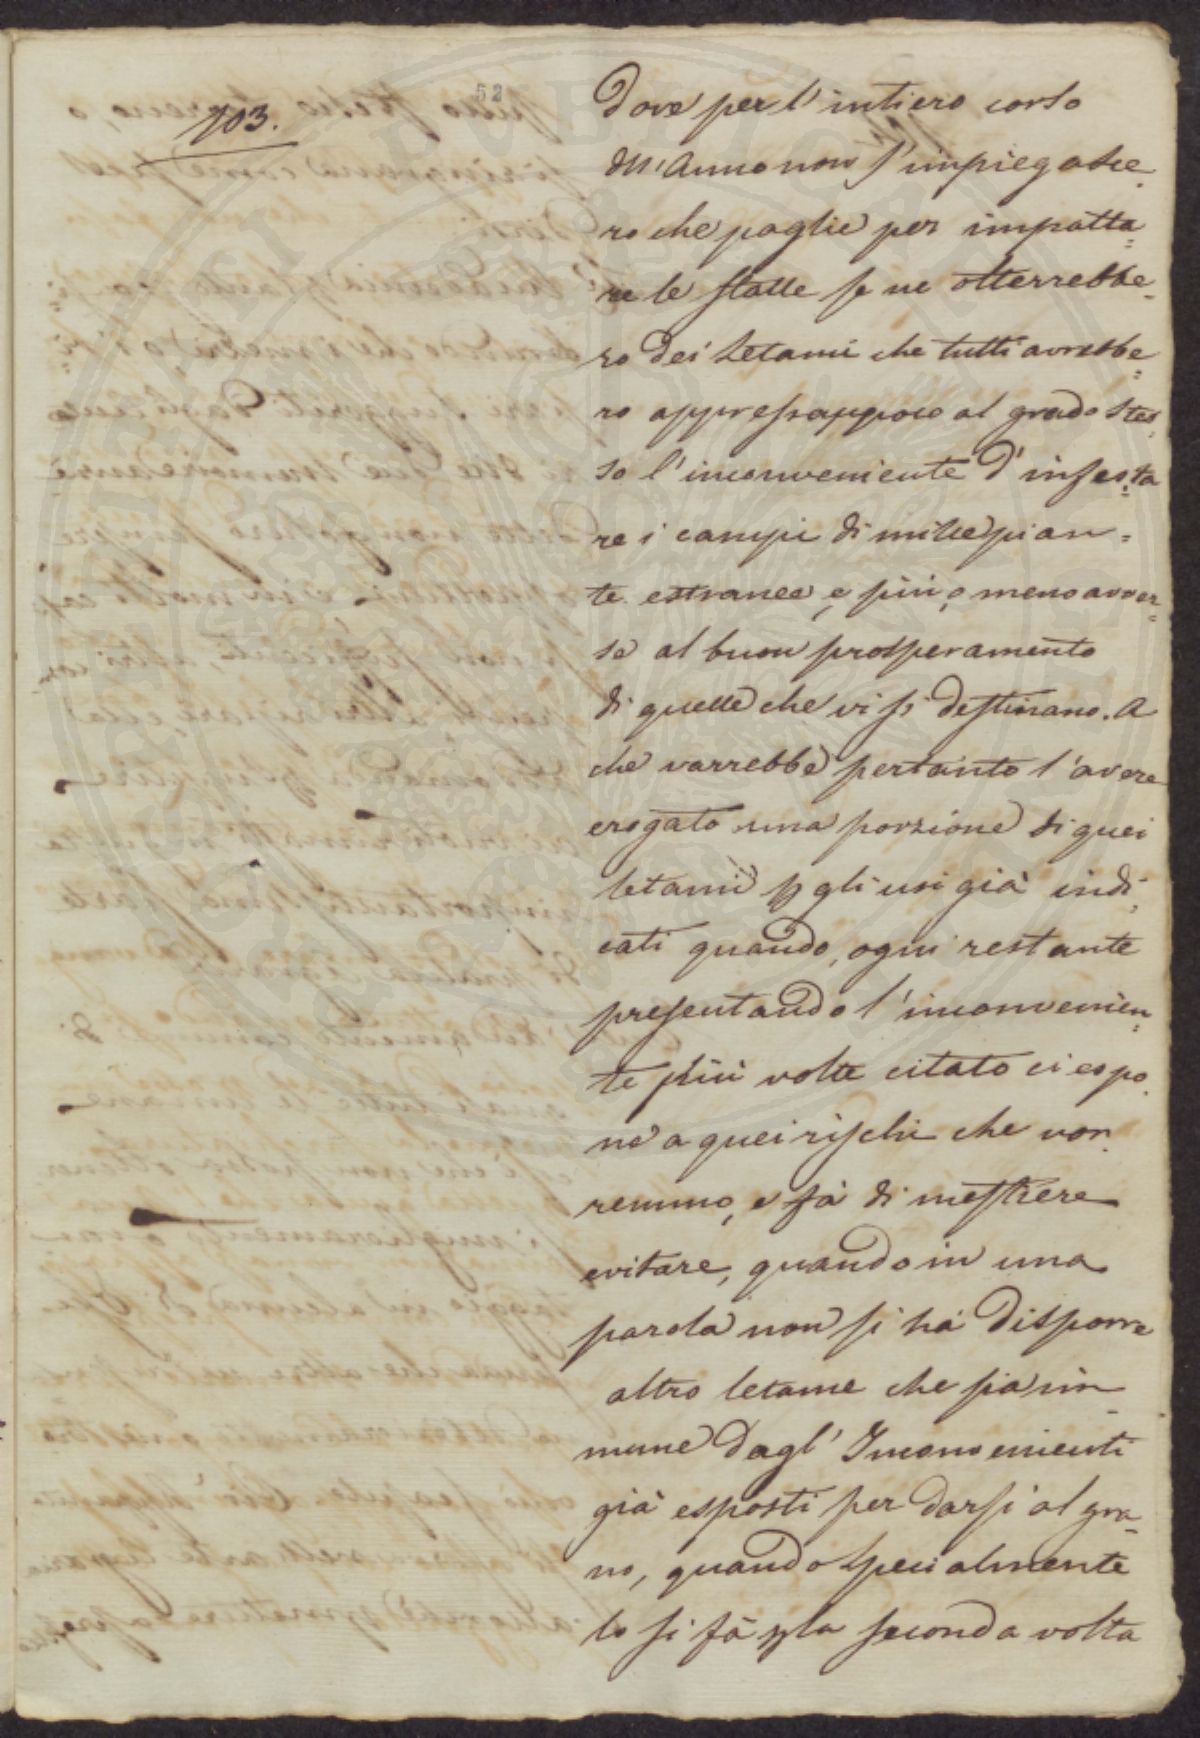 52
703.
Dove per l'intiero corso
dell'Anno non s'impiegasse=
ro che paglie per impatta=
re le stalle se ne otterrebbe=
ro dei Letami che tutti avrebbe=
ro appressappoco al grado stes=
so l'inconveniente d'infesta
re i campi di mille pian=
te estranee, e più, o meno avver=
se al buon prosperamento
di quelle che vi si destinano. A
che varrebbe pertanto l'avere
erogato una porzione di quei
letami p gli usi già indi=
cati quando, ogni restante
presentando l'inconvenien=
te più volte citato ci espo
ne a quei rischi che vor
remmo, e fà di mestiere
evitare, quando in una
parola non si ha disporre
altro letame che sia im=
mune dagl'Inconvenienti
già esposti per darsi al gra=
no, quando specialmente
lo si fà p la seconda volta